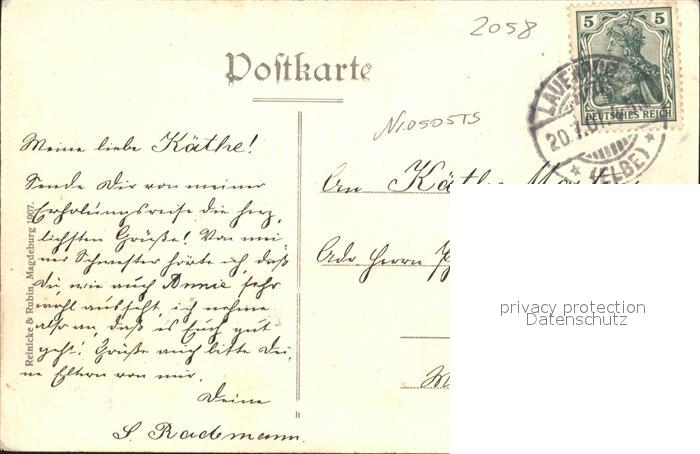 2058
5 5
DEUTSCHES REICH
LAUENBURG
20.7.0
(ELBE)
Postkarte
N10505TS
Meine liebe Käthe!
Sende Dir von meiner
Erholungsreise die herz-
lichsten Grüße! Von mei-
ner Schwester hörte ich, daß
Du wie auch Annie sehr
wohl aussehst, ich nehme
also an, daß es Euch gut
geht! Grüße auch bitte Dei-
ne Eltern von mir.
Deine
S. Rademann.
An Käthe
Adr. Herrn
Reinicke & Rubin, Magdeburg 1907.
privacy protection
Datenschutz